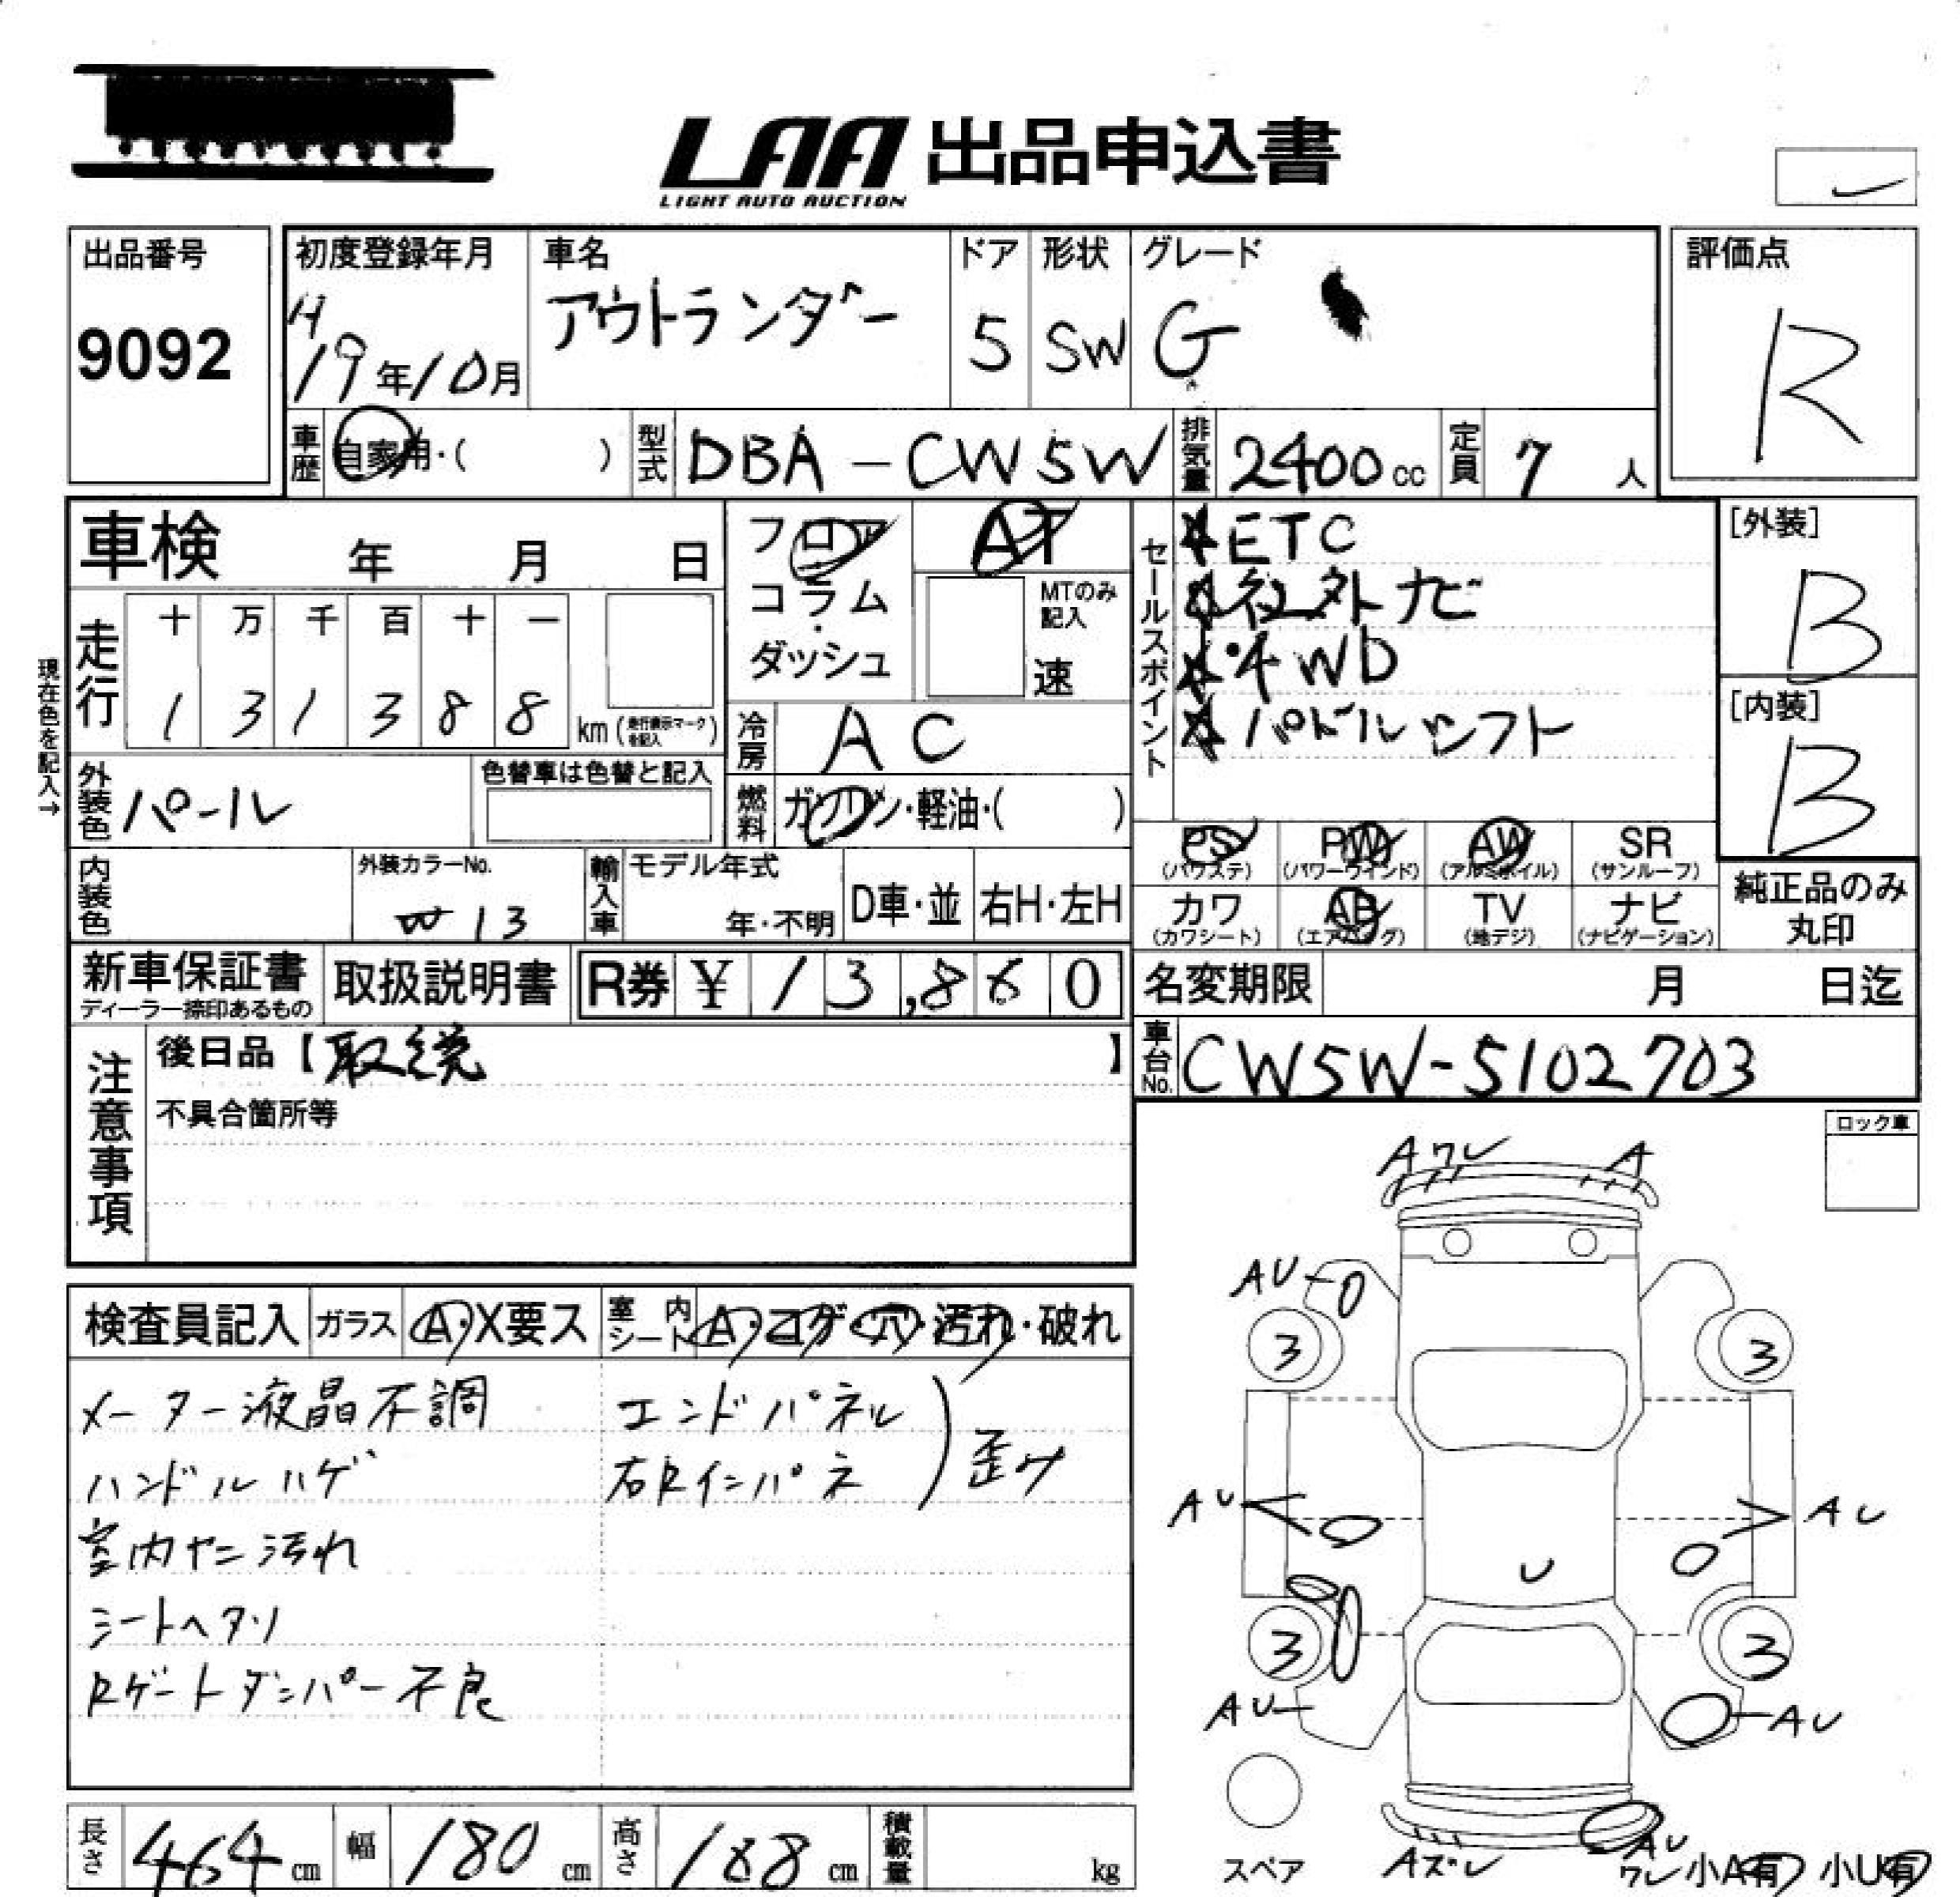 LAA 出品申込書
LIGHT AUTO AUCTION
出品番号
9092
初度登録年月
H
19年10月
車名
アウトランダー
ドア
5
形状
SW
グレード
G
評価点
R
車歴 自家用・( )
型式 DBA-CW5W
排気量 2400cc
定員 7人
車検 年 月 日
フロア
コラム
ダッシュ
AT
MTのみ記入
速
セールスポイント
☆ETC
☆社外ナビ
☆4WD
☆パドルシフト
[外装]
B
[内装]
B
現在色を記入→
走行
十 万 千 百 十 一
1 3 1 3 8 8 km (走行表示マークを記入)
冷房 AC
外装色 パール
色替車は色替と記入
燃料 ガソリン・軽油・( )
PS (パワステ)
PW (パワーウインド)
AW (アルミホイル)
SR (サンルーフ)
カワ (カワシート)
AB (エアバッグ)
TV (地デジ)
ナビ (ナビゲーション)
純正品のみ
丸印
内装色
外装カラーNo.
W13
輸入車
モデル年式
年・不明
D車・並
右H・左H
新車保証書
ディーラー捺印あるもの
取扱説明書
R券 ¥ 13,860
名変期限 月 日迄
注意事項
後日品【取続】
不具合箇所等
車台No. CW5W-5102703
ロック車
検査員記入
ガラス A・X要ス
室内シート A・コゲ・穴・汚れ・破れ
メーター液晶不調
ハンドルハゲ
室内ヤニ汚れ
シートヘタリ
Rゲートダンパー不良
エンドパネル
右Rインパネ
歪み
Aワレ
A
AU
3
3
AU
AU
U
3
3
AU
AU
スペア
Aズレ
AU
ワレ
小A有 小U有
長さ 464cm
幅 180cm
高さ 188cm
積載量 kg